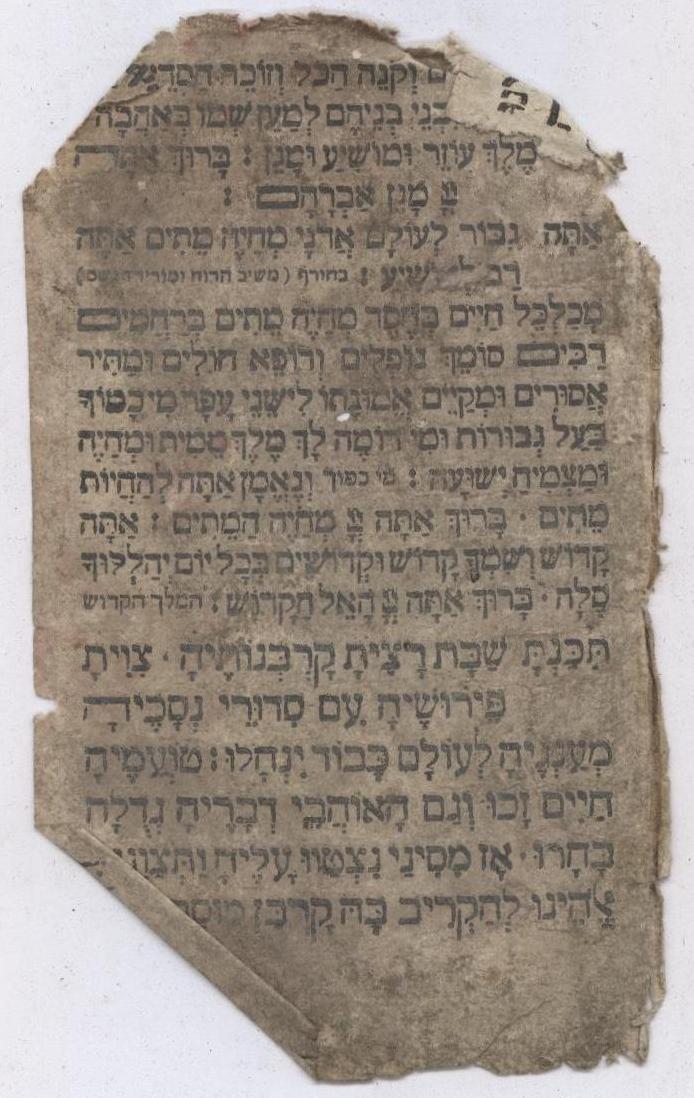 וְקֹנֵה הַכֹּל וְזוֹכֵר חַסְדֵי
בְנֵי בְנֵיהֶם לְמַעַן שְׁמוֹ בְּאַהֲבָה
מֶלֶךְ עוֹזֵר וּמוֹשִׁיעַ וּמָגֵן : בָּרוּךְ אַתָּה
יְיָ מָגֵן אַבְרָהָם :
אַתָּה גִבּוֹר לְעוֹלָם אֲדֹנָי מְחַיֵּה מֵתִים אַתָּה
רַב לְהוֹשִׁיעַ : בחורף (משיב הרוח ומוריד הגשם)
מְכַלְכֵּל חַיִּים בְּחֶסֶד מְחַיֵּה מֵתִים בְּרַחֲמִים
רַבִּים סוֹמֵךְ נוֹפְלִים וְרוֹפֵא חוֹלִים וּמַתִּיר
אֲסוּרִים וּמְקַיֵּים אֱמוּנָתוֹ לִישֵׁנֵי עָפָר מִי כָמוֹךָ
בַּעַל גְּבוּרוֹת וּמִי דוֹמֶה לָךְ מֶלֶךְ מֵמִית וּמְחַיֶּה
וּמַצְמִיחַ יְשׁוּעָה : מי כמוך וְנֶאֱמָן אַתָּה לְהַחֲיוֹת
מֵתִים · בָּרוּךְ אַתָּה יְיָ מְחַיֵּה הַמֵּתִים : אַתָּה
קָדוֹשׁ וְשִׁמְךָ קָדוֹשׁ וּקְדוֹשִׁים בְּכָל יוֹם יְהַלְלוּךָ
סֶלָה · בָּרוּךְ אַתָּה יְיָ הָאֵל הַקָּדוֹשׁ : המלך הקדוש
תִּכַּנְתָּ שַׁבָּת רָצִיתָ קָרְבְּנוֹתֶיהָ · צִוִּיתָ
פֵּירוּשֶׁיהָ עִם סִדּוּרֵי נְסָכֶיהָ
מְעַנְּגֶיהָ לְעוֹלָם כָּבוֹד יִנְחָלוּ : טוֹעֲמֶיהָ
חַיִּים זָכוּ וְגַם הָאוֹהֲבֵי דְבָרֶיהָ גְדֻלָּה
בָּחָרוּ · אָז מִסִּינַי נִצְטַוּוּ עָלֶיהָ וַתְּצַוֵּנוּ
אֱלֹהֵינוּ לְהַקְרִיב בָּהּ קָרְבַּן מוּסַף